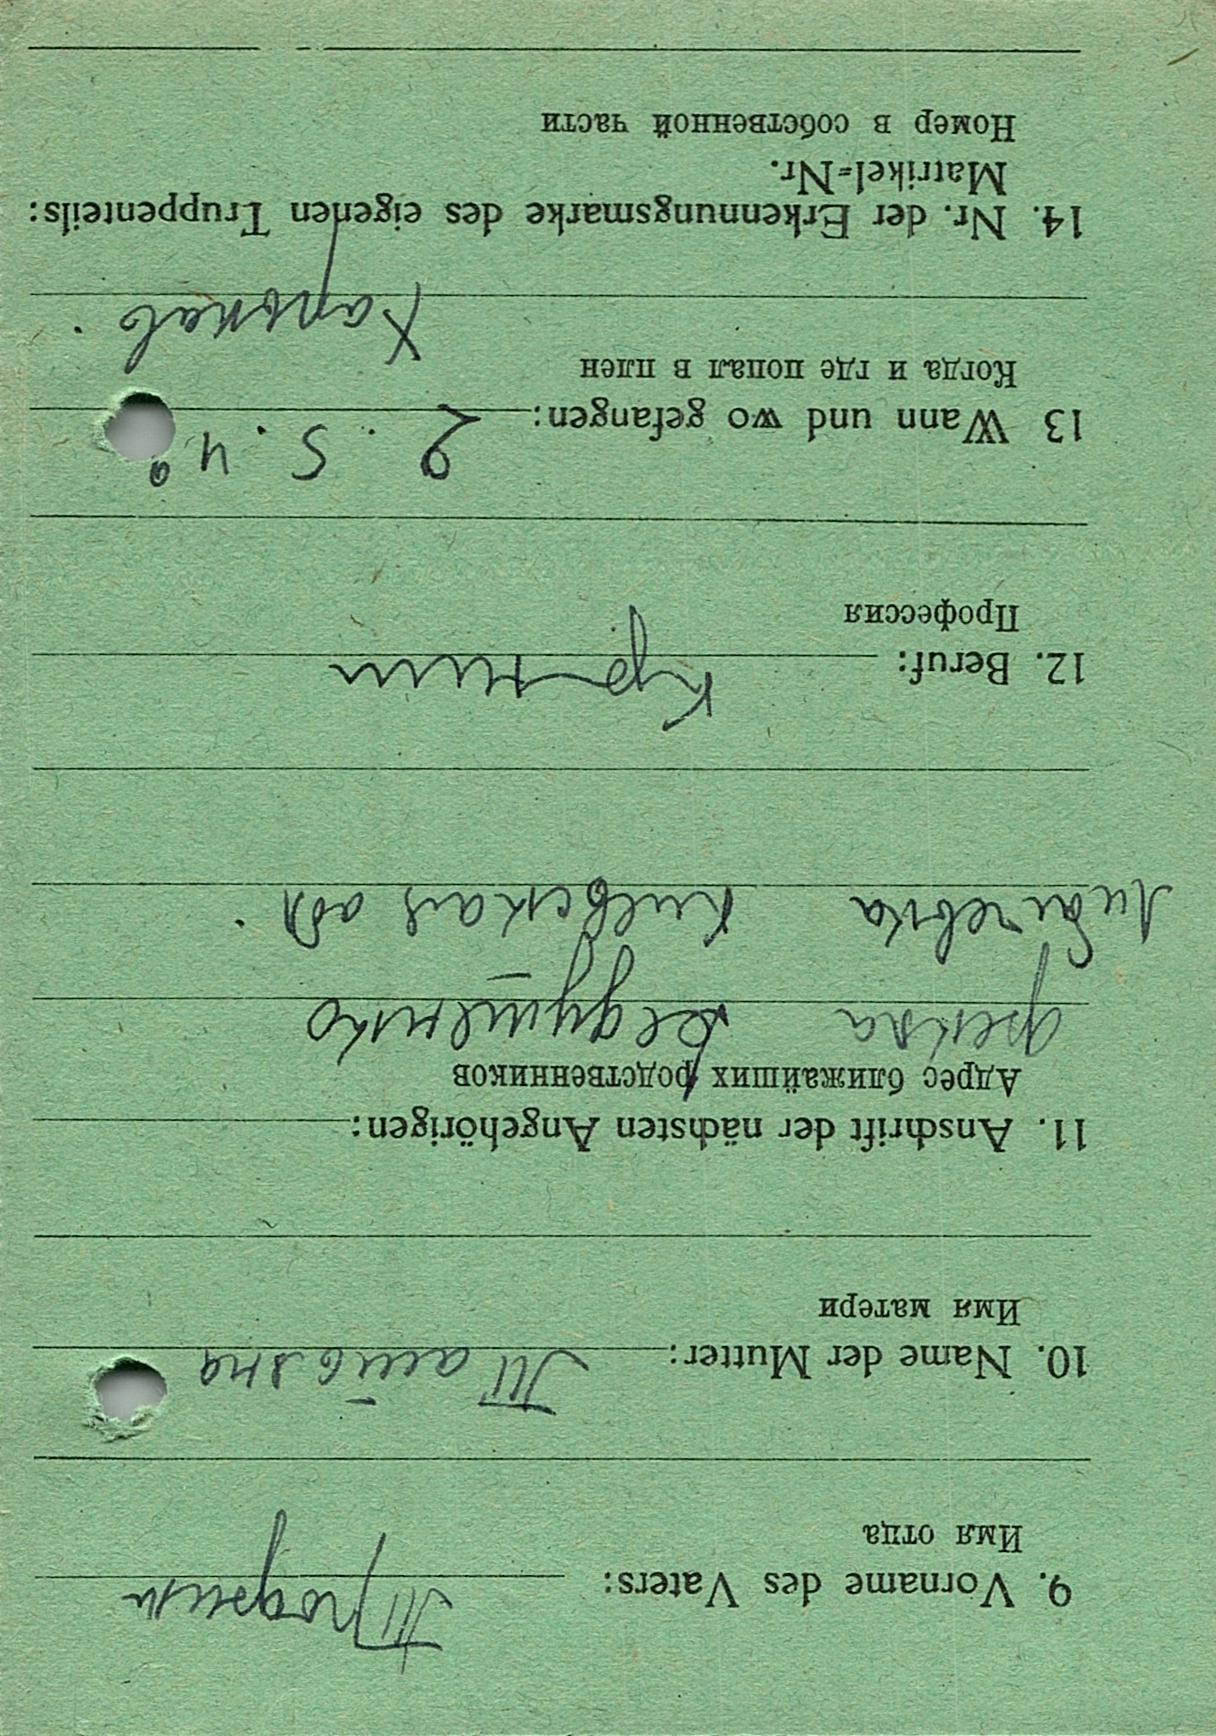 9. Vorname des Vaters: Трофим
Имя отца
10. Name der Mutter:
Имя матери
11. Anschrift der nächsten Angehörigen:
Адрес ближайших родственников
фекла
Киевская обл.
12. Beruf:
Профессия
13 Wann und wo gefangen: 2. 5. 4
Когда и где попал в плен
Харьков.
14. Nr. der Erkennungsmarke des eigenen Truppenteils:
Matrikel-Nr.
Номер в собственной части